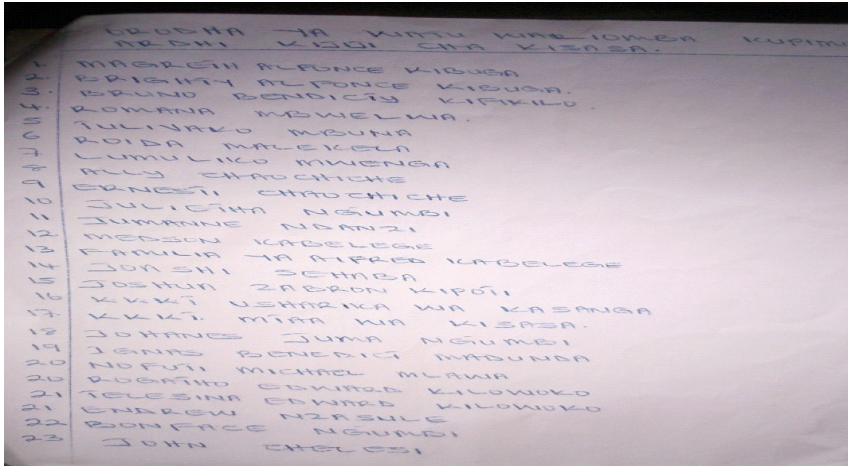 ORODHA YA WATU WALIOMBA KUPIMI
ARDHI KIJIJI CHA KISASA.
1. MAGRETH ALFONCE KIBUGA
2. BRIGHTY ALFONCE KIBUGA.
3. BRUNO BENDICTY KIFIKILO.
4. ROMANA MBWELWA.
5 TULIVAKO MBUNA
6 ROIDA MALEKELA
7 LUMULIKO MWENGA
8 ALLY CHAUCHICHE
9 ERNEST CHAUCHICHE
10 JULICTHA NGUMBI
11 JUMANNE NDANZI
12 MEDSON KABELEGE
13 FAMILIA YA ALFRED KABELEGE
14 JOASHI SEHABA
15 JOSHUA ZABRON KIPOTI
16 K.K.K.T USHARIKA WA KASANGA
17. K.K.K.T. MTAA WA KISASA.
18 JOHANES JUMA NGUMBI
19 IGNAS BENEDICT MADUNDA
20 NOFUTI MICHAEL MLAWA
20 ROGATHO EDWARD KILOWOKO
21 TELESINA EDWARD KILOWOKO
21 ENDREW NZASULE
22 BONFACE NGUMBI
23 JOHN CHELESI